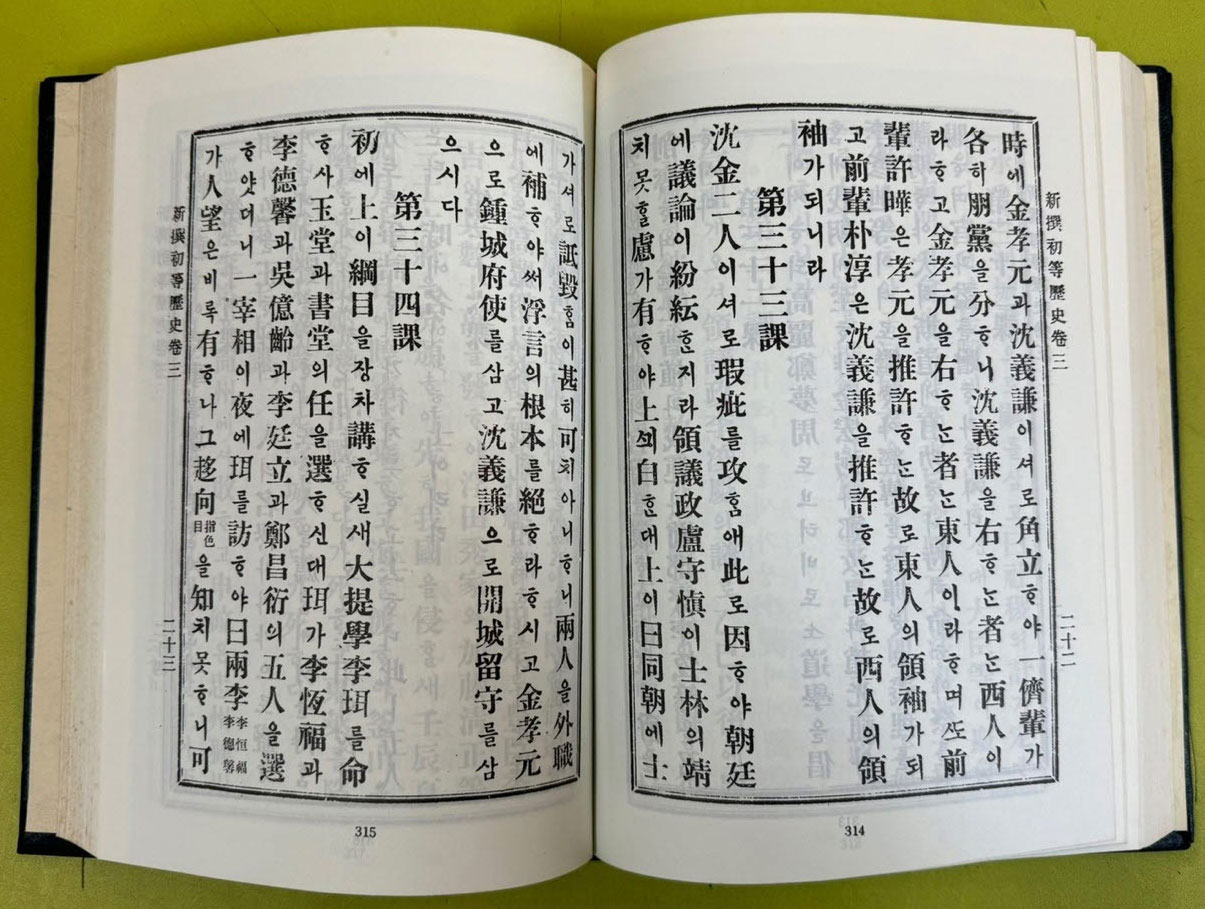 新撰初等歷史卷三
二十二
時에金孝元과沈義謙이셔로角立ᄒᆞ야一儕輩가
各하朋黨을分ᄒᆞ니沈義謙을右ᄒᆞᄂᆞᆫ者ᄂᆞᆫ西人이
라ᄒᆞ고金孝元을右ᄒᆞᄂᆞᆫ者ᄂᆞᆫ東人이라ᄒᆞ며ᄯᅩ前
輩許曄은孝元을推許ᄒᆞᄂᆞᆫ故로東人의領袖가되
고前輩朴淳은沈義謙을推許ᄒᆞᄂᆞᆫ故로西人의領
袖가되니라
第三十三課
沈金二人이셔로瑕疵를攻ᄒᆞᆷ애此로因ᄒᆞ야朝廷
에議論이紛紜ᄒᆞᆫ지라領議政盧守愼이士林의靖
치못ᄒᆞᆯ慮가有ᄒᆞ야上ᄭᅴ白ᄒᆞᆫ대上이曰同朝에士
314
가셔로詆毁ᄒᆞᆷ이甚히可치아니ᄒᆞ니兩人을外職
에補ᄒᆞ야써浮言의根本를絕ᄒᆞ라ᄒᆞ시고金孝元
으로鍾城府使를삼고沈義謙으로開城留守를삼
으시다
第三十四課
初에上이綱目을장차講ᄒᆞ실새大提學李珥를命
ᄒᆞ사玉堂과書堂의任을選ᄒᆞ신대珥가李恆福과
李德馨과吳億齡과李廷立과鄭昌衍의五人을選
ᄒᆞ얏더니一宰相이夜에珥를訪ᄒᆞ야曰兩李李恒福李德馨
가人望은비록有ᄒᆞ나그趍向指色目을知치못ᄒᆞ니可
新撰初等歷史卷三
二十三
315